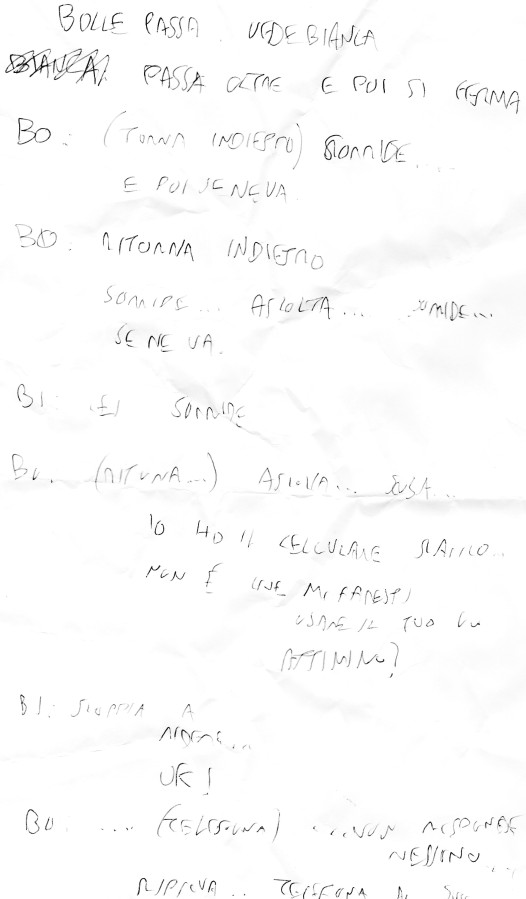 BOLLE PASSA. VEDE BIANCA
PASSA OLTRE E POI SI FERMA
BO: (TORNA INDIETRO) SORRIDE....
E POI SE NE VA.
BO: RITORNA INDIETRO
SORRIDE... ASCOLTA... SORRIDE...
SE NE VA.
BI: SORRIDE
BO: (RITORNA...) ASCOLTA... SCUSA...
IO HO IL CELLULARE SCARICO..
NON È CHE MI FARESTI
USARE IL TUO UN
ATTIMINO?
BI: SCOPPIA A
RIDERE...
OK!
BO: .... (TELEFONA) ...NON RISPONDE
NESSUNO...
RIPROVA.. TELEFONA